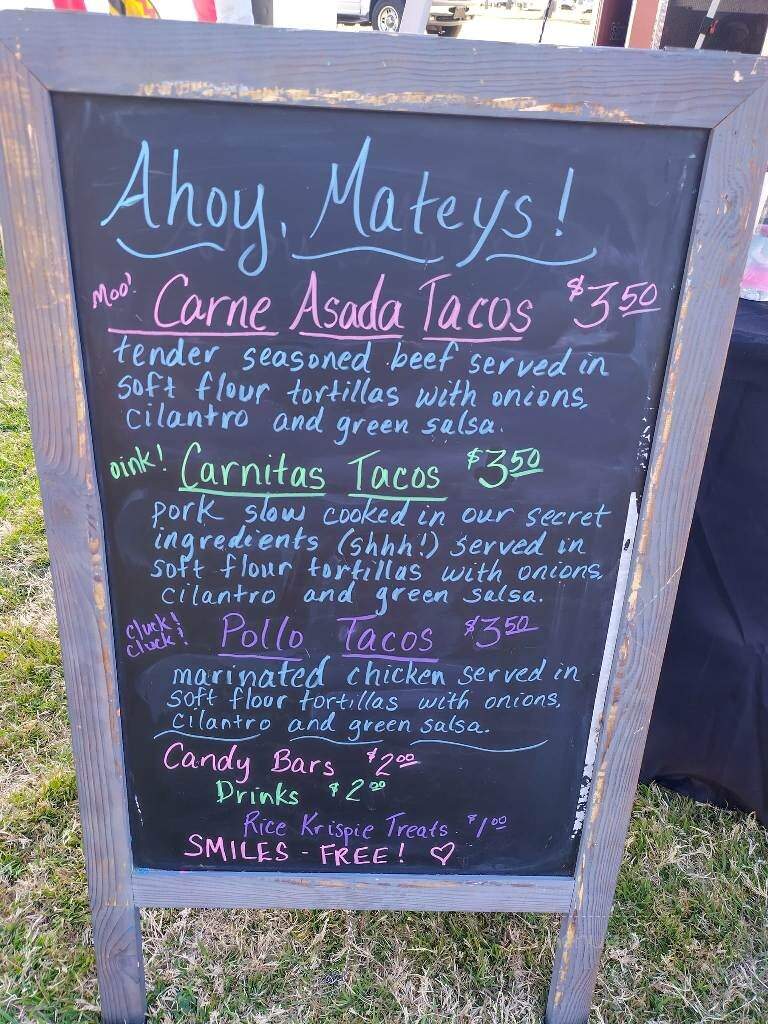 Ahoy, Mateys!
Moo! Carne Asada Tacos $3.50
tender seasoned beef served in
soft flour tortillas with onions,
cilantro and green salsa.
oink! Carnitas Tacos $3.50
pork slow cooked in our secret
ingredients (shhh!) served in
soft flour tortillas with onions,
cilantro and green salsa.
cluck! cluck! Pollo Tacos $3.50
marinated chicken served in
soft flour tortillas with onions,
cilantro and green salsa.
Candy Bars $2.00
Drinks $2.00
Rice Krispie Treats $1.00
SMILES - FREE! ♡